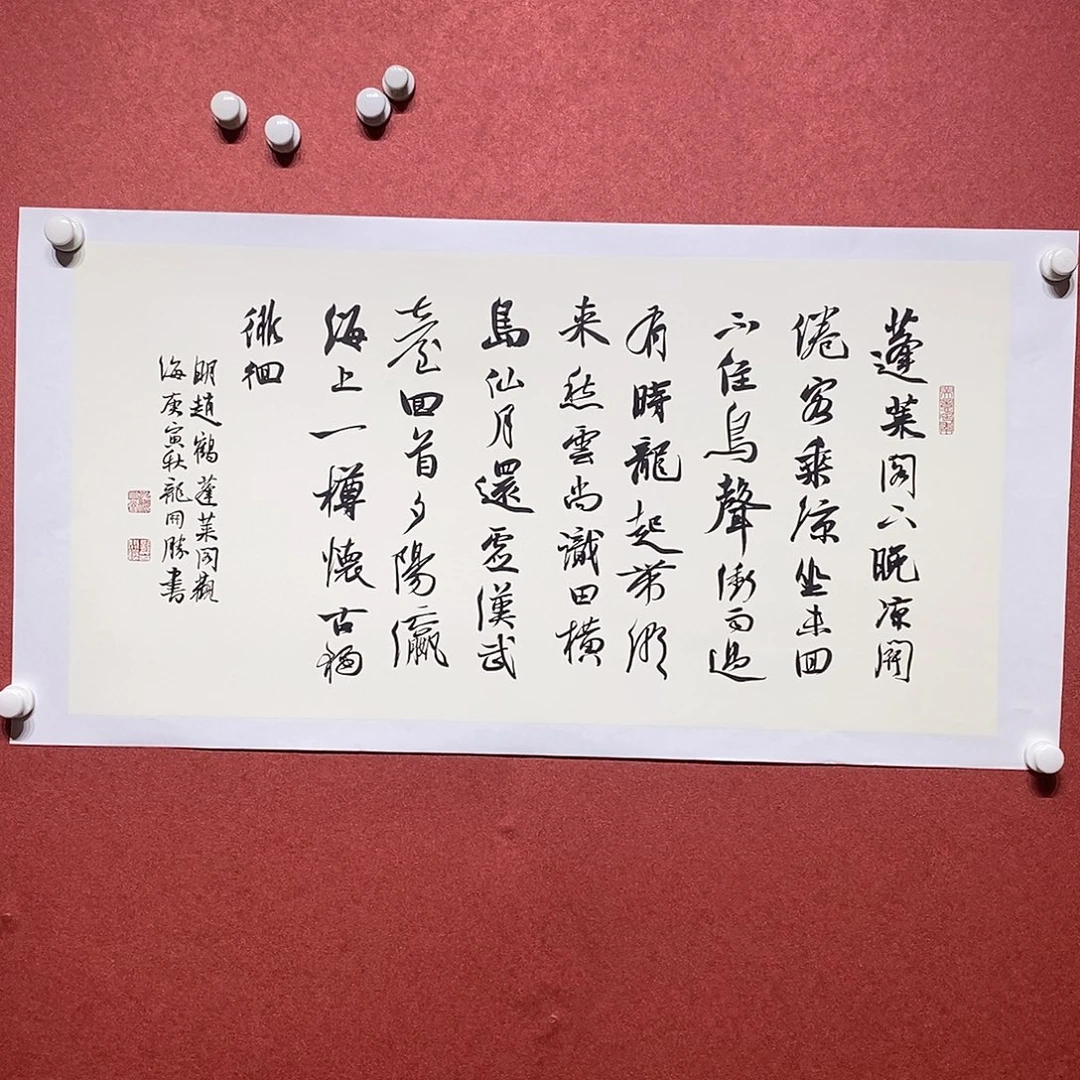 蓬莱閣下晚凉開
倦客乘涼坐未回
不住鳥聲衝雨過
有時龍起帶潮
来愁雲尚識田橫
島仙月還虚漢武
臺回首夕陽瀛
海上一樽懷古獨
徘徊
明趙鶴蓬莱閣觀
海庚寅秋龍開勝書